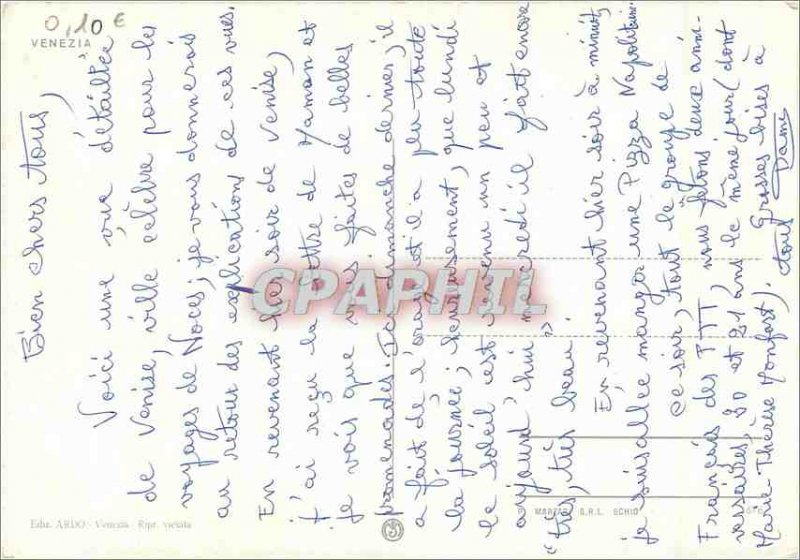 0,10 €
VENEZIA
Bien chers tous,
Voici une vue détaillée
de Venise, ville célèbre pour les
voyages de Noces; je vous donnerais
au retour des explications de ces vues.
En revenant hier soir de Venise,
j'ai reçu la lettre de Maman et
je vois que vous faites de belles
promenades. Ici dimanche dernier, il
a fait de l'orage et il a plu toute
la journée; heureusement, que lundi
le soleil est revenu un peu et
aujourd'hui mercredi il fait encore
"très, très beau".
En revenant hier soir à minuit,
je suis allée manger une Pizza Napolitaine.
Ce soir, tout le groupe de
Français des PTT, nous fêtons deux anni-
versaires, 30 et 21 ans le même jour (dont
Marie-Thérèse Monfast). Grosses bises à
tous
CPAPHIL
Ediz. ARDO - Venezia - Ripr. vietata
S.R.L. SCHIO